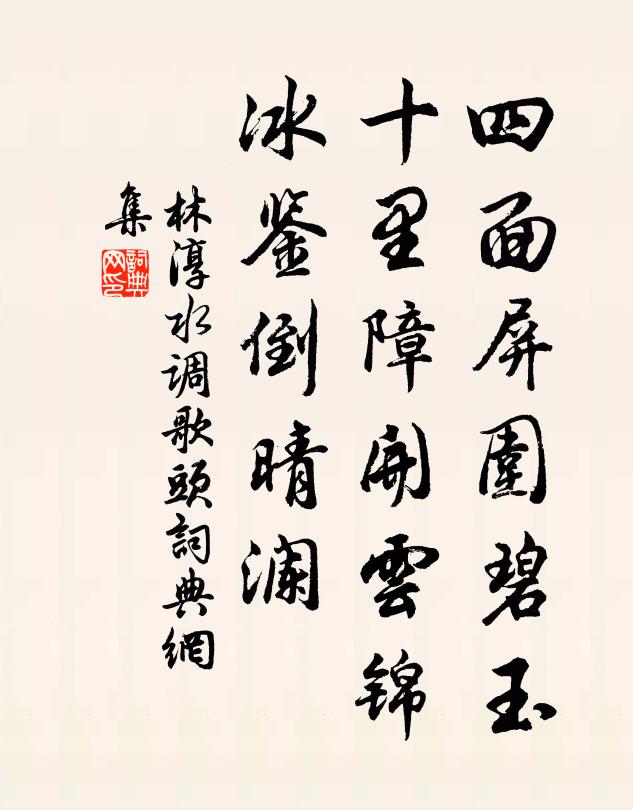 四面屏圍碧玉
十里障開雲錦
冰鉴倒晴澜
林淳水調歌頭詞典網
集
詞典網印